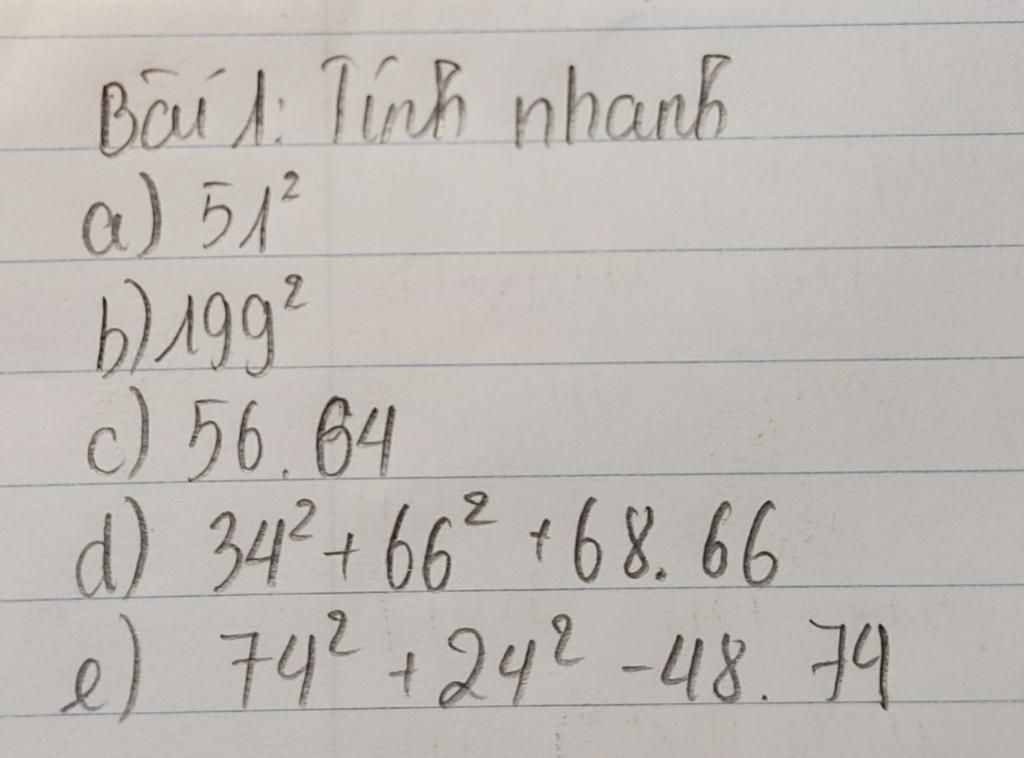 Bài 1: Tính nhanh
a) 51²
b) 199²
c) 56. 64
d) 34² + 66² + 68. 66
e) 74² + 24² - 48. 74